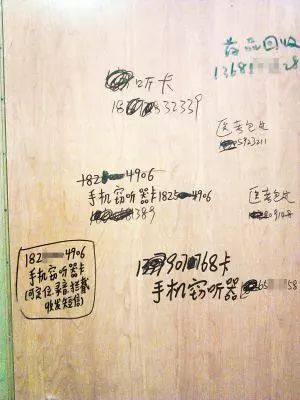 药品回收
1368 28
听卡
18 832339
医考包过
5923211
182 4906
手机窃听器卡1825 4906
389
医考包过
0914
182 4906
手机窃听器卡
(可定位.录音.拦截
收发短信)
13 901 68卡
手机窃听器 58